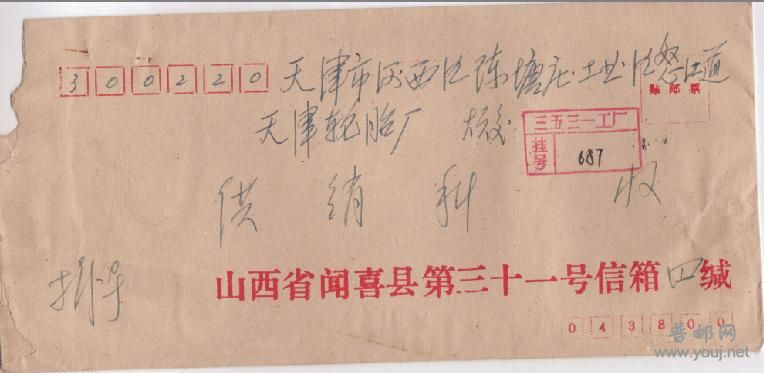 300220
天津市河西区陈塘庄工业区
道
贴邮票
天津轮胎厂
三五三一工厂
挂号
687
供销科 收
挂号
山西省闻喜县第三十一号信箱四缄
043800
普邮网
www.youj.net